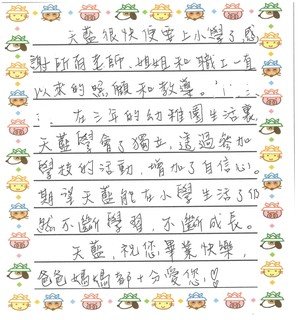 天藍很快便要上小學了感
謝所有老師、姐姐和職工一直
以來的照顧和教導。
在三年的幼稚園生活裏,
天藍學會了獨立,透過參加
學校的活動,增加了自信心。
期望天藍能在小學生活了仍
然不斷學習,不斷成長。
天藍,祝您畢業快樂,
爸爸媽媽都十分愛您!♡